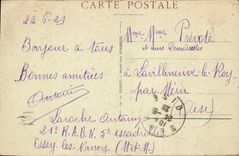 CARTE POSTALE
22-6-21
Bonjour à tous
Bonnes amitiées
Antoine
Laroche Antoine
21e R.A.B.N. 5e escadrille
Essey-les-Nancy (M-et-M)
Mme Mme Prévoté
et leurs Demoiselles
à Lavilleneuve-le-Roy
par Méru
(Oise)